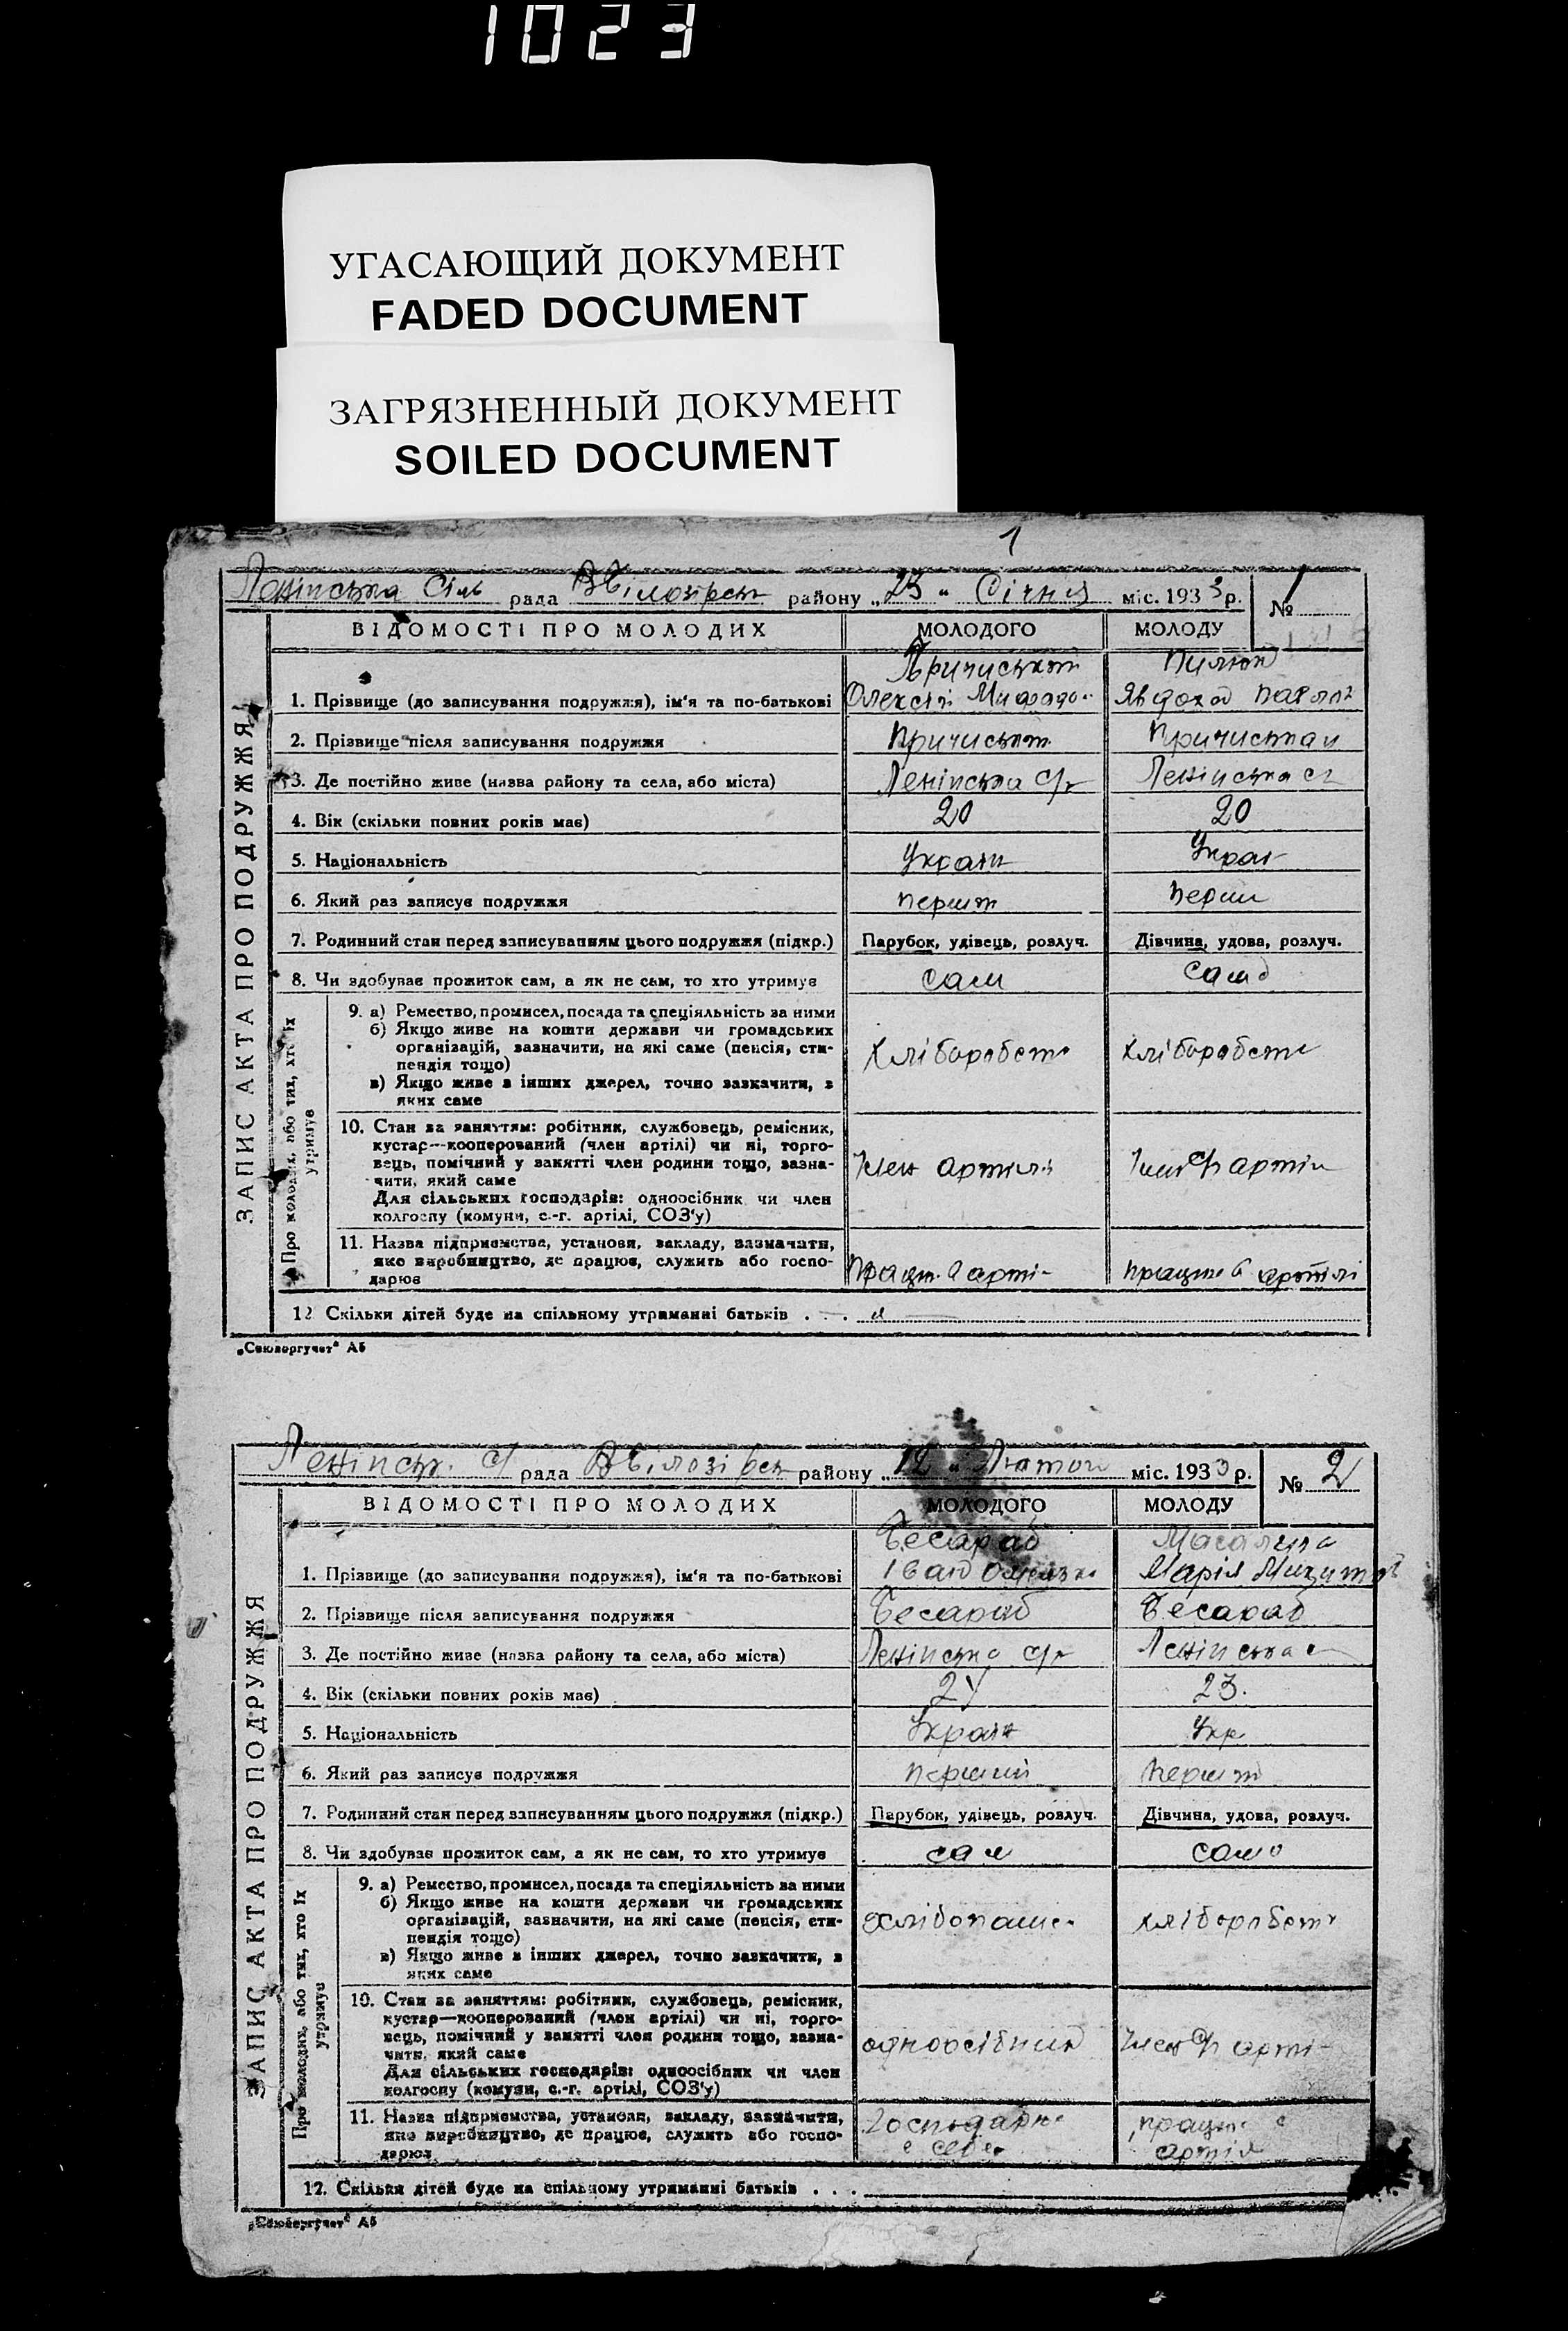 1023
УГАСАЮЩИЙ ДОКУМЕНТ
FADED DOCUMENT
ЗАГРЯЗНЕННЫЙ ДОКУМЕНТ
SOILED DOCUMENT
1
Ленінська Сіль рада району „23“ Січня міс. 1933 р. № 1
ВІДОМОСТІ ПРО МОЛОДИХ МОЛОДОГО МОЛОДУ
ЗАПИС АКТА ПРО ПОДРУЖЖЯ
1. Прізвище (до записування подружжя), ім'я та по-батькові Олексій
2. Прізвище після записування подружжя
3. Де постійно живе (назва району та села, або міста) Ленінська с/р Ленінська
4. Вік (скільки повних років має) 20 20
5. Національність Україн Украї
6. Який раз записує подружжя перший Перш
7. Родинний стан перед записуванням цього подружжя (підкр.) Парубок, удівець, розлуч. Дівчина, удова, розлуч.
8. Чи здобуває прожиток сам, а як не сам, то хто утримує сам сама
Про молодих, або тих, хто їх утримує
9. а) Ремество, промисел, посада та спеціяльність за ними
б) Якщо живе на кошти держави чи громадських
організацій, зазначити, на які саме (пенсія, сти-
пендія тощо) Хліборобств Хліборобств
в) Якщо живе з інших джерел, точно зазначити, з
яких саме
10. Стан за заняттям: робітник, службовець, ремісник,
кустар—кооперований (член артілі) чи ні, торго-
вець, помічний у занятті член родини тощо, зазна-
чити, який саме член артілі член артіл
Для сільських господарів: одноосібник чи член
колгоспу (комуни, с.-г. артілі, СОЗ'у)
11. Назва підприємства, установи, закладу, зазначати,
яке виробництво, де працює, служить або госпо-
дарює працює в арті- працює в артілі
12 Скільки дітей буде на спільному утриманні батьків . . .
„Союзоргучет“ А5
Ленінсь. с/ рада району „12“ Лютого міс. 1933 р. № 2
ВІДОМОСТІ ПРО МОЛОДИХ МОЛОДОГО МОЛОДУ
ЗАПИС АКТА ПРО ПОДРУЖЖЯ
Бесараб
1. Прізвище (до записування подружжя), ім'я та по-батькові Іван Марія
2. Прізвище після записування подружжя Бесараб Бесараб
3. Де постійно живе (назва району та села, або міста) Ленінська с/р Ленінська с
4. Вік (скільки повних років має) 23.
5. Національність Україн Укр
6. Який раз записує подружжя перший перший
7. Родинний стан перед записуванням цього подружжя (підкр.) Парубок, удівець, розлуч. Дівчина, удова, розлуч.
8. Чи здобуває прожиток сам, а як не сам, то хто утримує сам сама
Про молодих, або тих, хто їх утримує
9. а) Ремество, промисел, посада та спеціяльність за ними
б) Якщо живе на кошти держави чи громадських
організацій, зазначити, на які саме (пенсія, сти-
пендія тощо) хліборобств
в) Якщо живе з інших джерел, точно зазначити, з
яких саме
10. Стан за заняттям: робітник, службовець, ремісник,
кустар—кооперований (член артілі) чи ні, торго-
вець, помічний у занятті член родини тощо, зазна-
чити, який саме одноосібник член арті-
Для сільських господарів: одноосібник чи член
колгоспу (комуни, с.-г. артілі, СОЗ'у)
11. Назва підприємства, установи, закладу, зазначити,
яке виробництво, де працює, служить або госпо-
дарює
12. Скільки дітей буде на спільному утриманні батьків . . .
„Союзоргучет“ А5